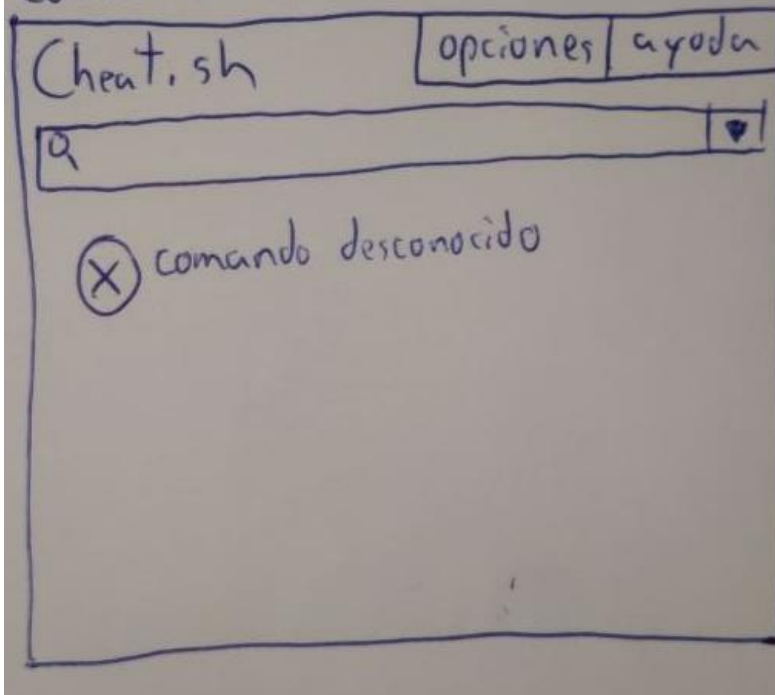 Cheat.sh
opciones ayuda
comando desconocido